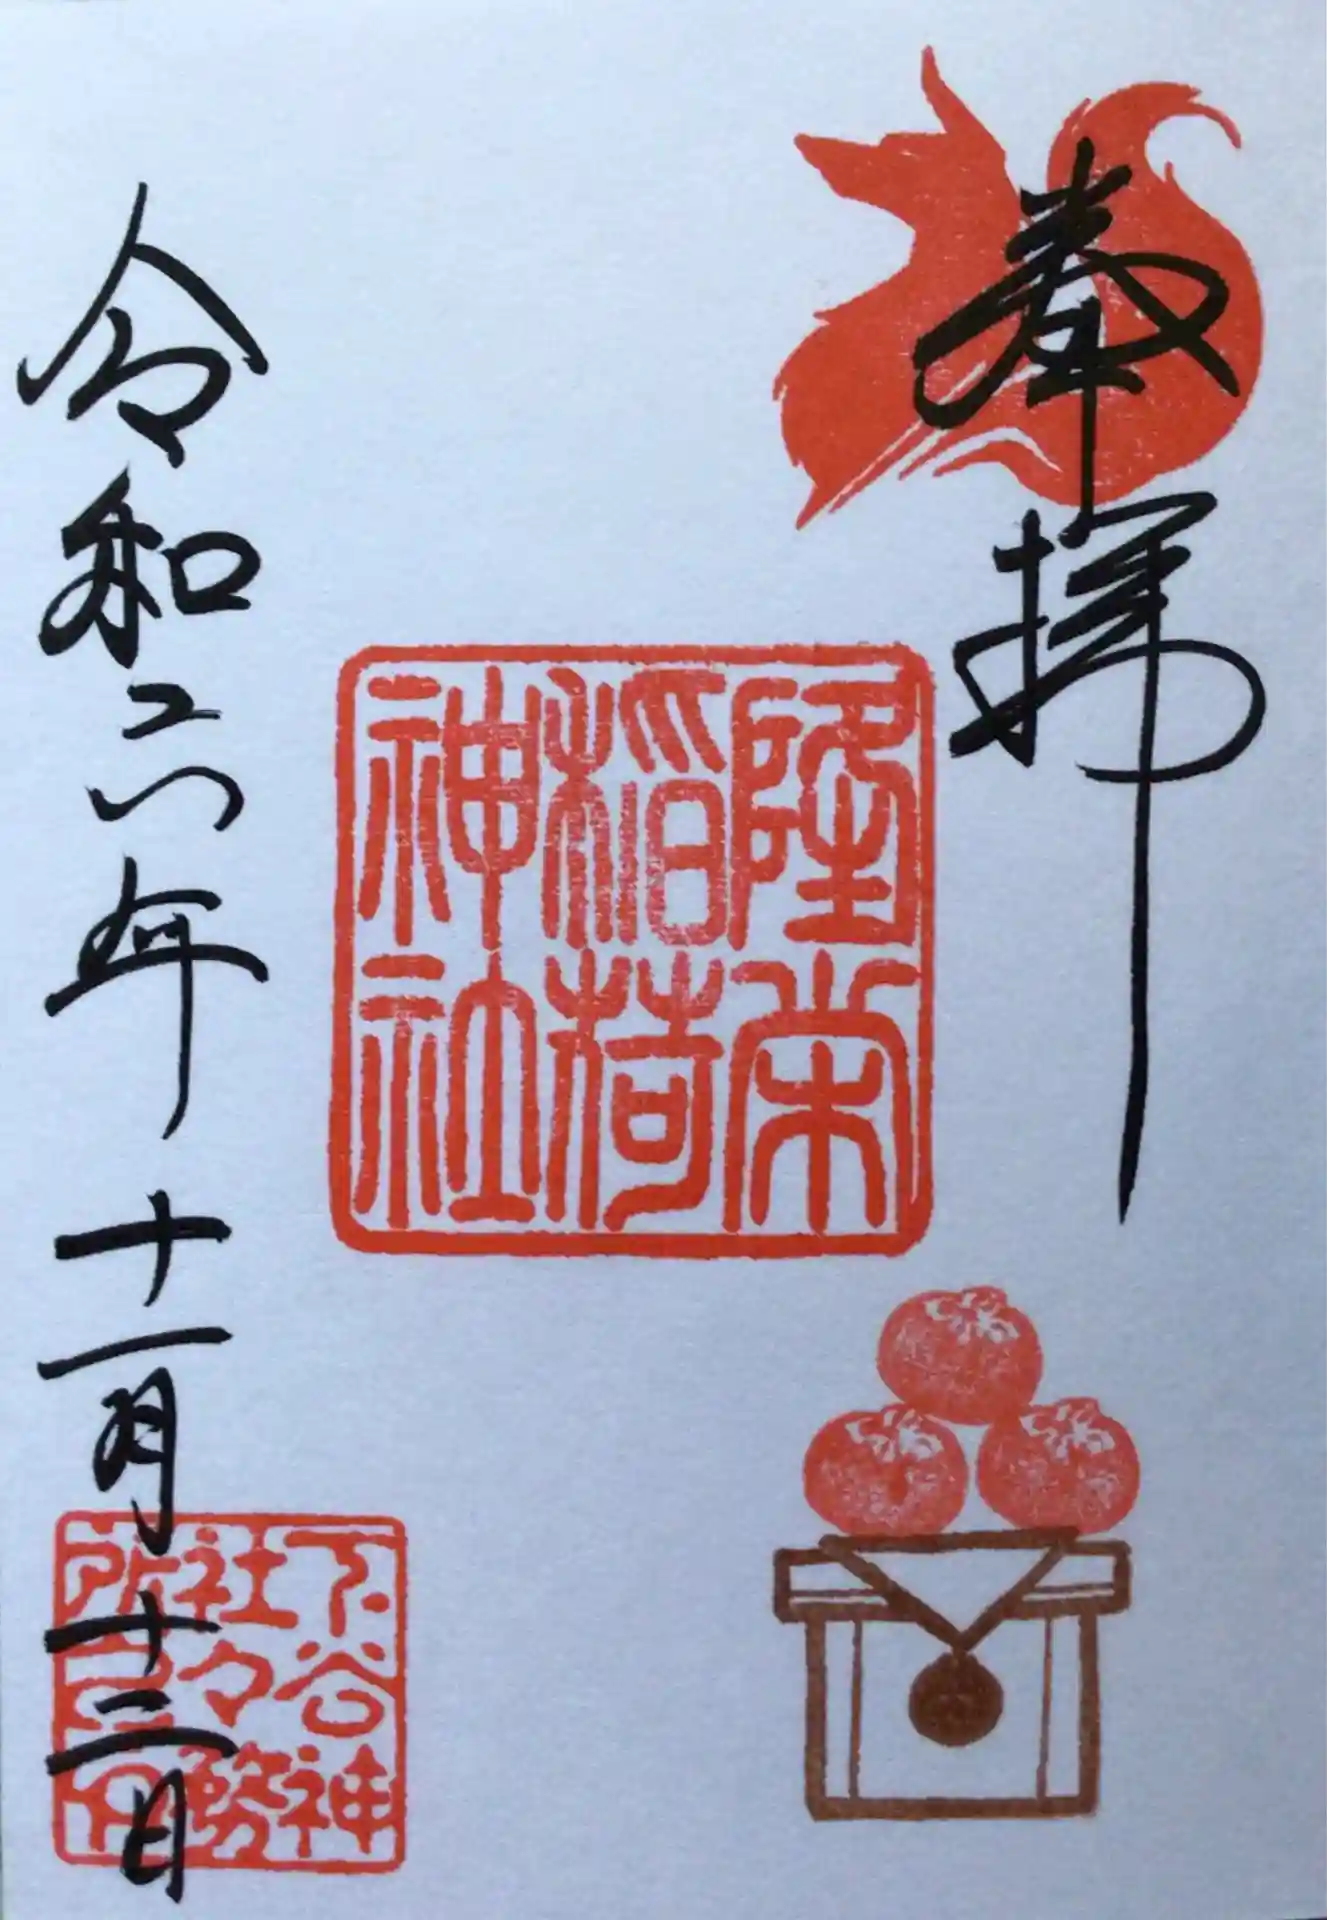 奉拝
隆栄
稲荷
神社
令和六年十一月十二日
下谷神
社々務
所之印